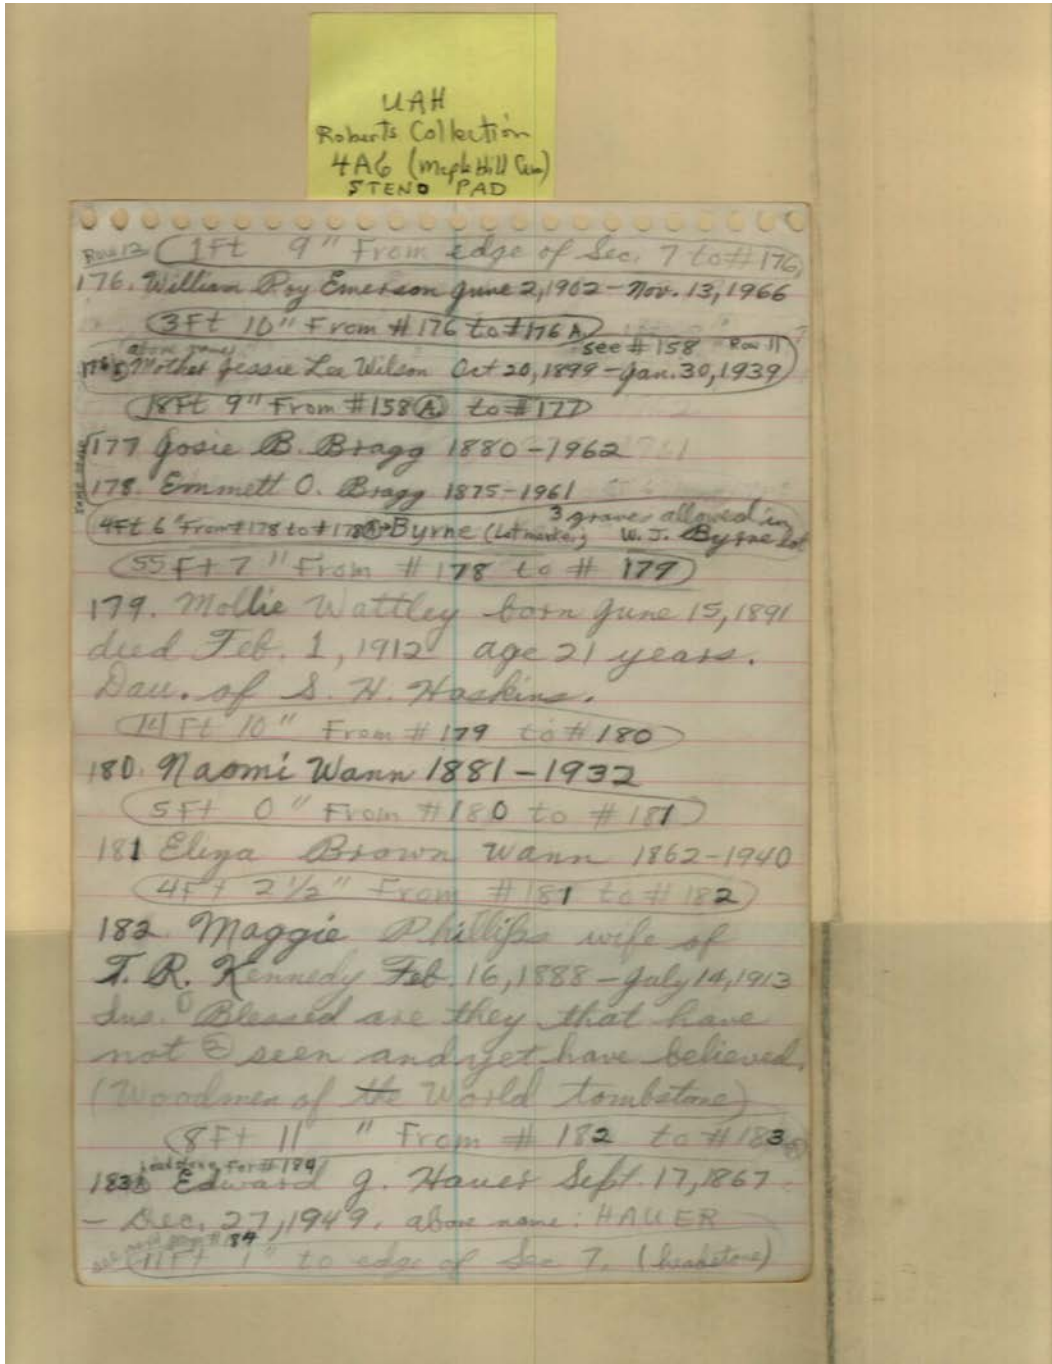 UAH
Roberts Collection
4A6 (Maple Hill Cem)
STENO PAD
Row 12 1Ft 9" From edge of Sec. 7 to #176
176. William Roy Emerson June 2, 1902 - Nov. 13, 1966
3Ft 10" From #176 to #176A
see #158 Row 11
above name
Mother Jessie Lee Wilson Oct 20, 1899 - Jan. 30, 1939
18Ft 9" From #158 A to #177
177 Josie B. Bragg 1880-1962
178. Emmett O. Bragg 1875-1961
3 graves allowed in
4Ft 6" From #178 to #178 A Byrne (Lot marker) W. J. Byrne Lot
55Ft 7" From #178 to #179
179. Mollie Wattley born June 15, 1891
died Feb. 1, 1912 age 21 years.
Dau. of S. H. Haskins.
14Ft 10" From #179 to #180
180. Naomi Wann 1881-1932
5Ft 0" From #180 to #181
181 Eliza Brown Wann 1862-1940
4Ft 2 1/2" From #181 to #182
182. Maggie Phillips wife of
T. R. Kennedy Feb. 16, 1888 - July 14, 1913
Ins. Blessed are they that have
not 2 seen and yet have believed.
(Woodmen of the World tombstone)
8Ft 11 " From #182 to #183
For #184
183 Edward J. Hauer Sept. 17, 1867
- Dec. 27, 1949. above name: HAUER
#184
11Ft 1" to edge of Sec 7. (headstone)